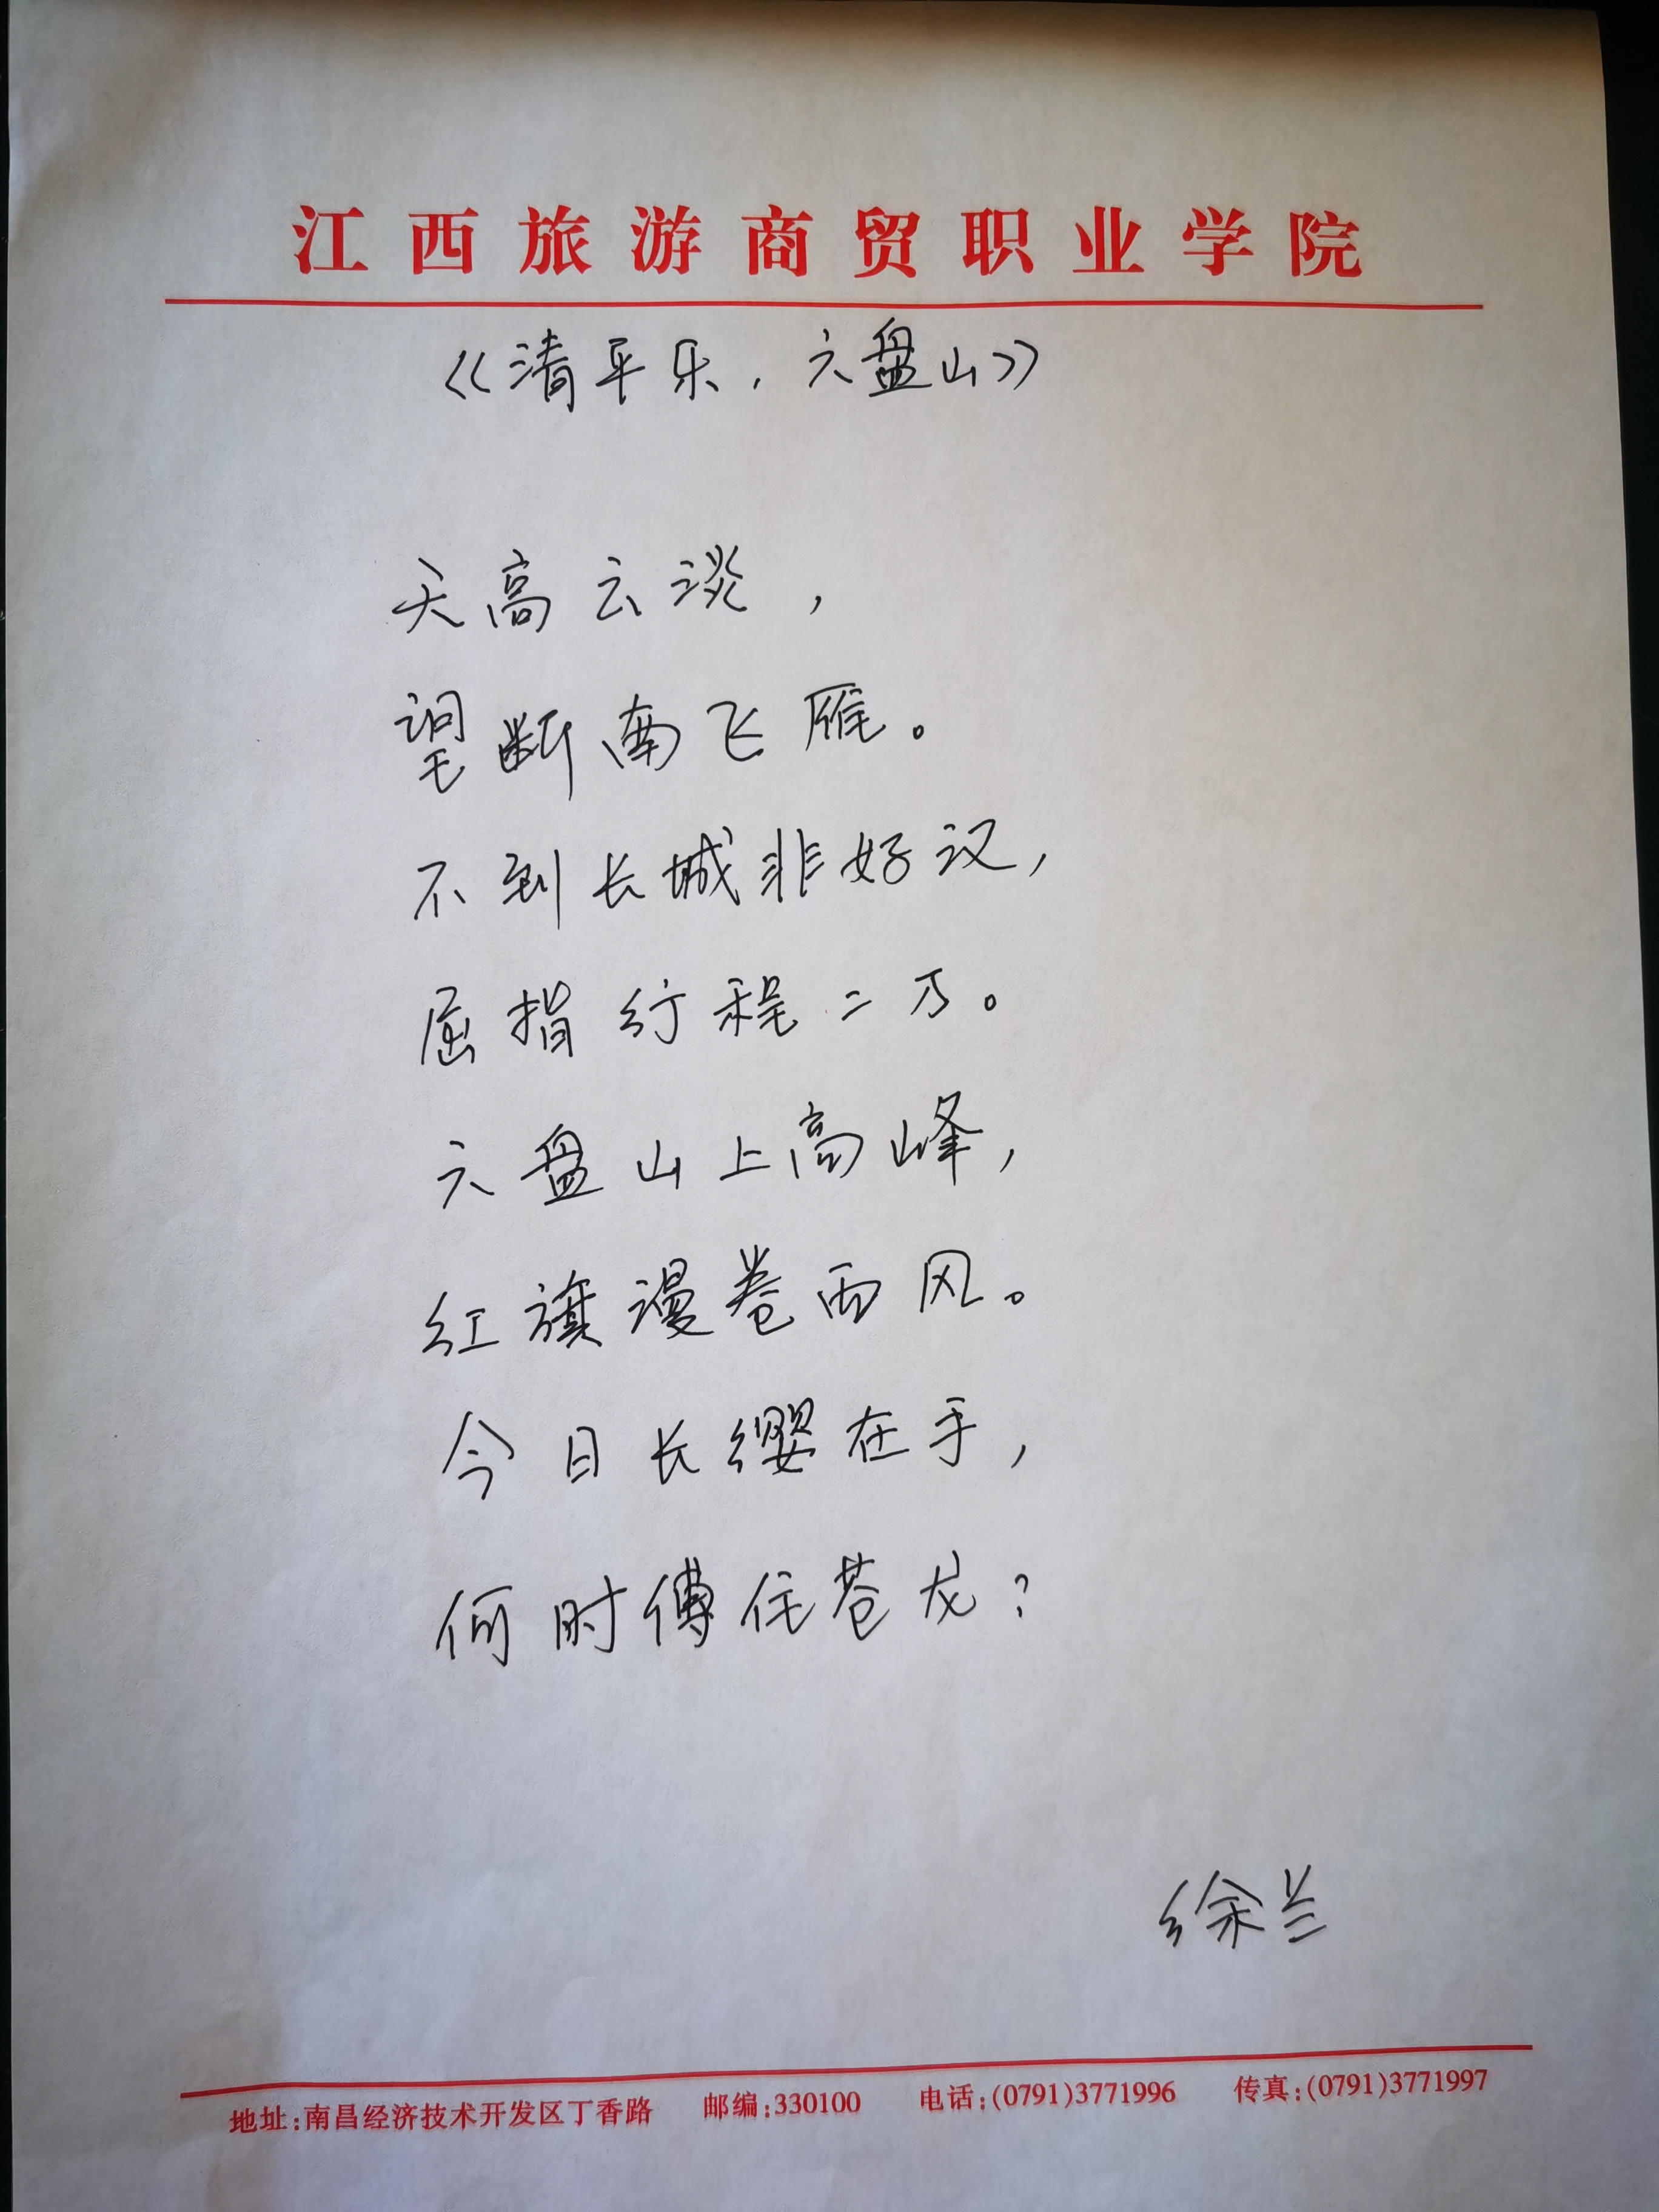 江西旅游商贸职业学院
《清平乐．六盘山》
天高云淡，
望断南飞雁。
不到长城非好汉，
屈指行程二万。
六盘山上高峰，
红旗漫卷西风。
今日长缨在手，
何时傅住苍龙？
徐兰
地址:南昌经济技术开发区丁香路 邮编:330100 电话:(0791)3771996 传真:(0791)3771997